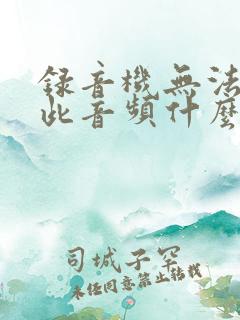 錄音機無法
此音頻什麼
司城子容
未经同意禁止转载